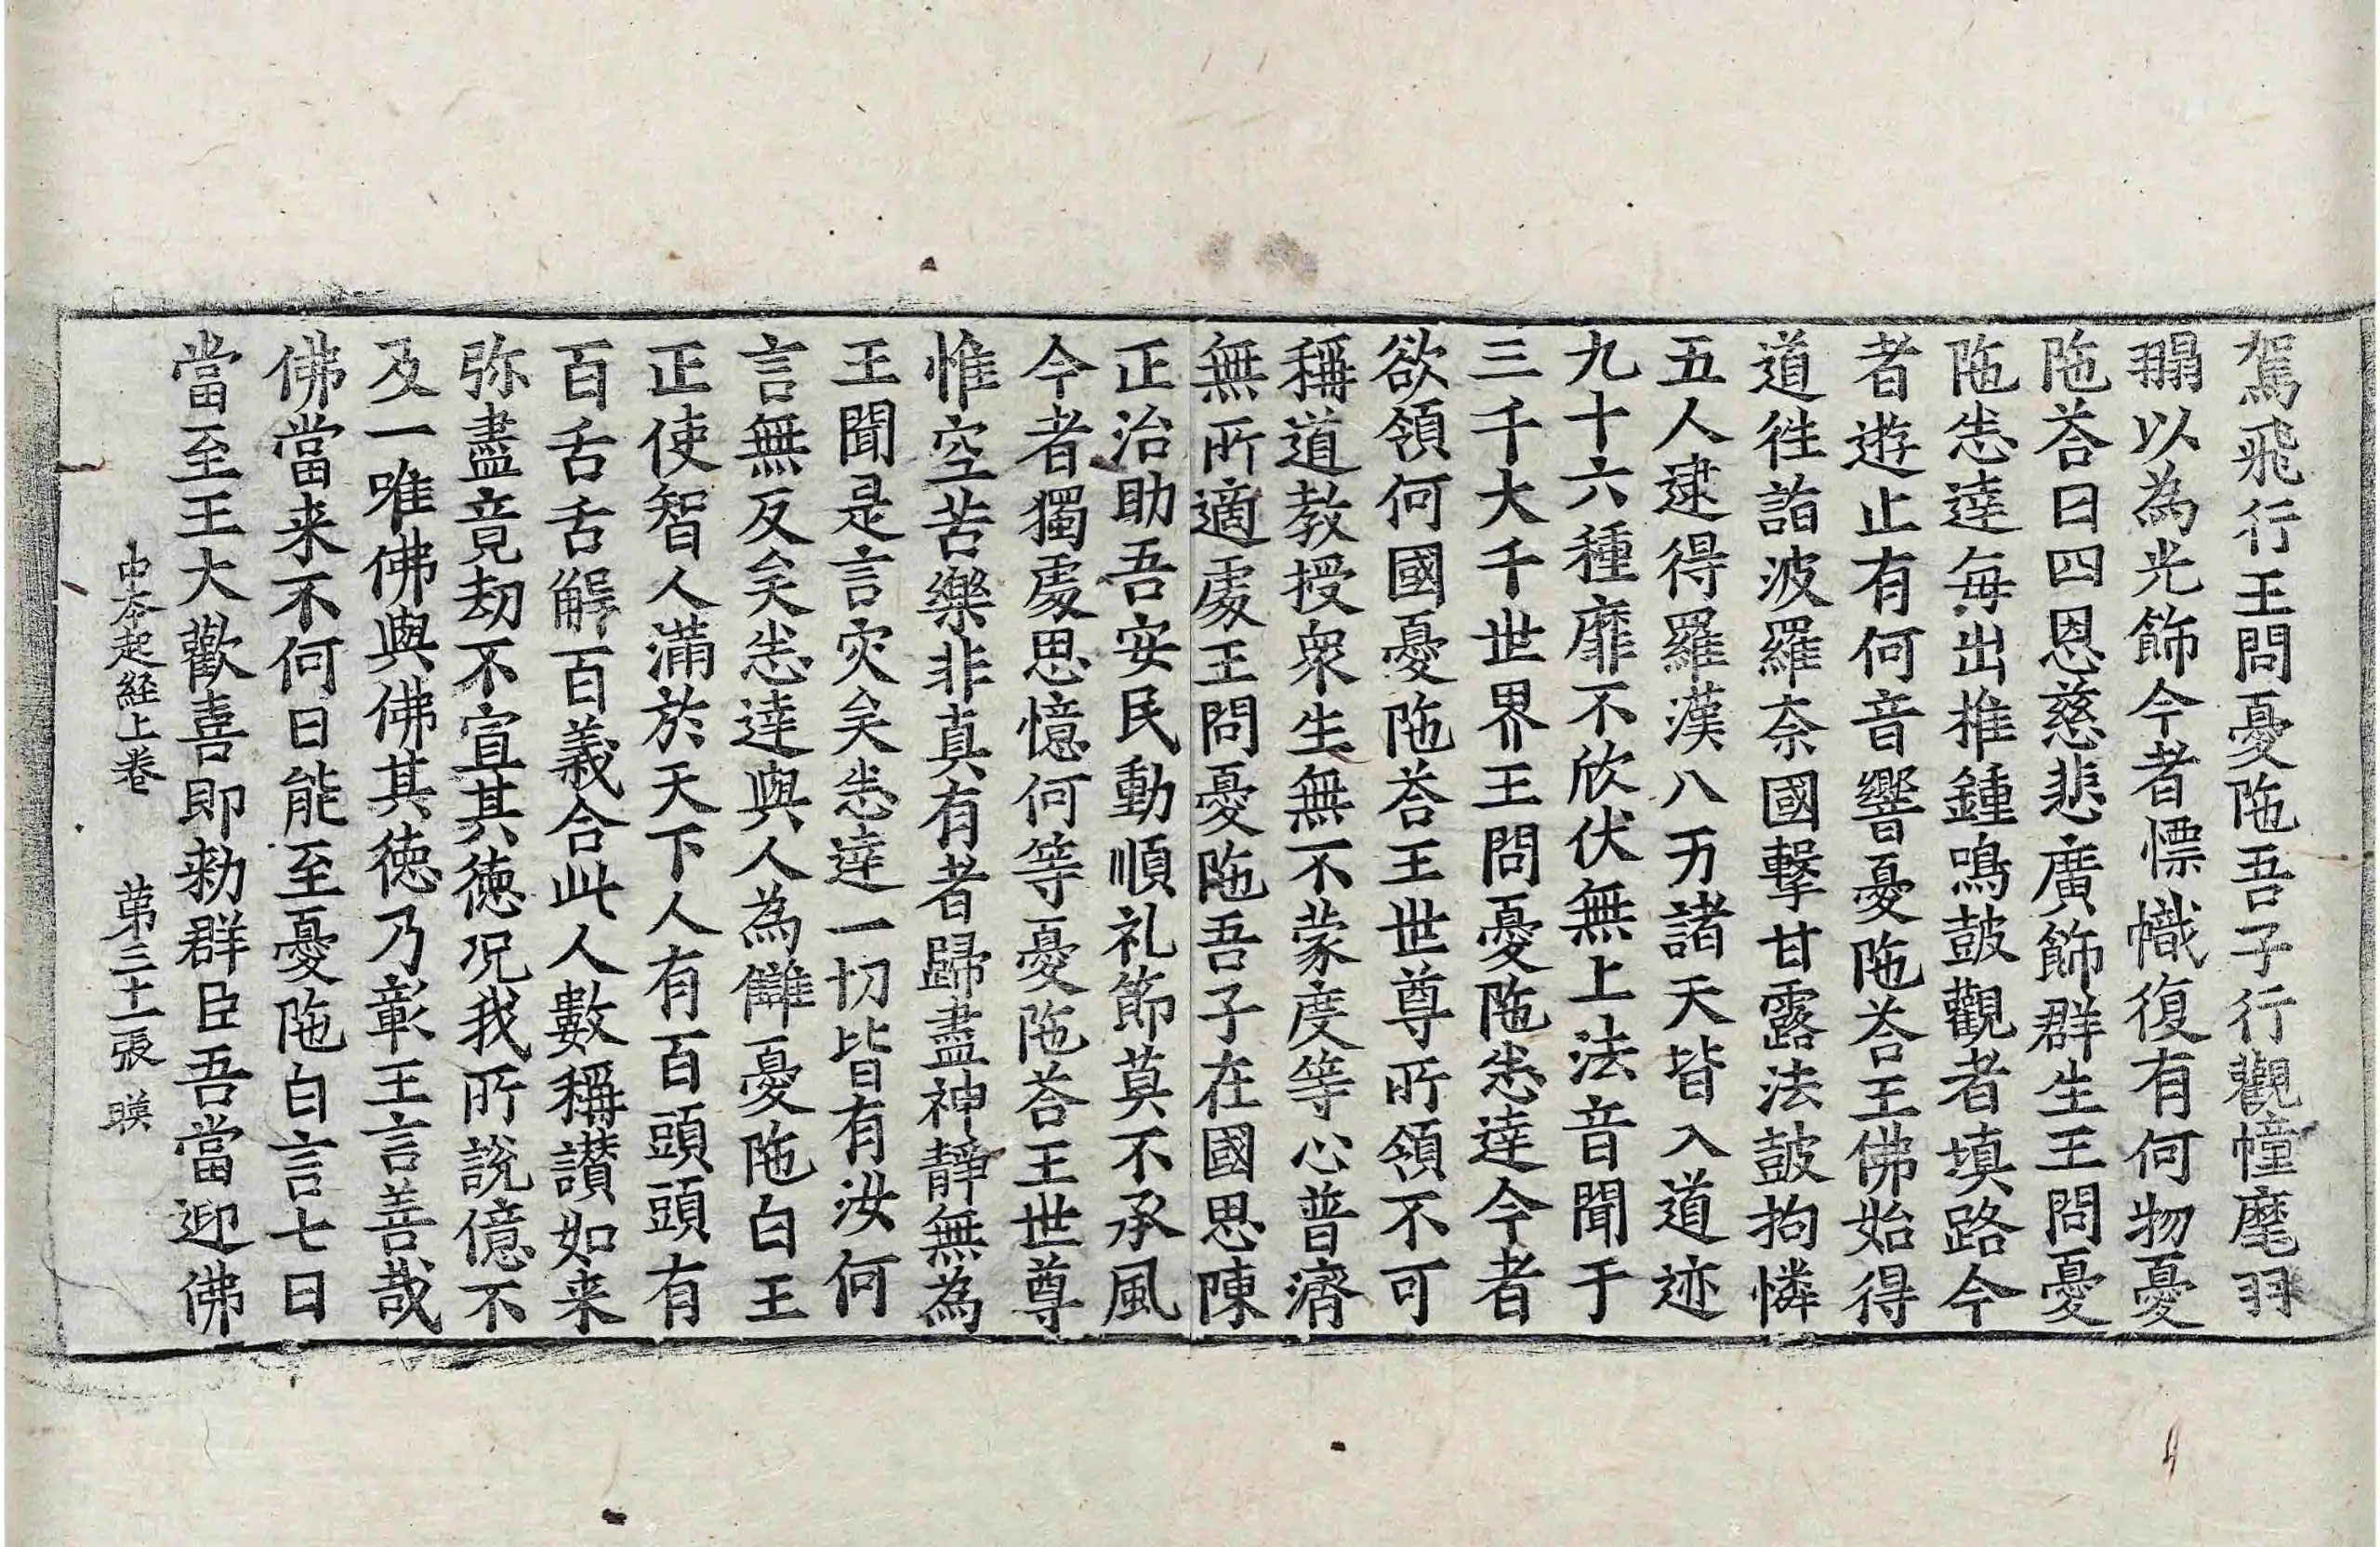 駕飛行王問憂陁吾子行觀幢麾羽
翿以為光飾今者幖幟復有何物憂
陁荅曰四恩慈悲廣飾群生王問憂
陁悉達每出推鍾鳴鼓觀者填路今
者遊止有何音響憂陁荅王佛始得
道徃詣波羅奈國擊甘露法鼓拘憐
五人逮得羅漢八万諸天皆入道迹
九十六種靡不欣伏無上法音聞于
三千大千世界王問憂陁悉達今者
欲領何國憂陁荅王世尊所領不可
稱道教授衆生無不蒙度等心普濟
無所適處王問憂陁吾子在國思陳
正治助吾安民動順礼節莫不承風
今者獨處思憶何等憂陁荅王世尊
惟空苦樂非真有者歸盡神靜無為
王聞是言灾矣悉達一切皆有汝何
言無反矣悉達與人為讎憂陁白王
正使智人滿於天下人有百頭頭有
百舌舌解百義合此人數稱讃如来
弥盡竟劫不宣其德况我所說億不
及一唯佛與佛其德乃彰王言善哉
佛當来不何日能至憂陁白言七日
當至王大歡喜即勑群臣吾當迎佛
中夲起經上卷　苐三十一張　暎